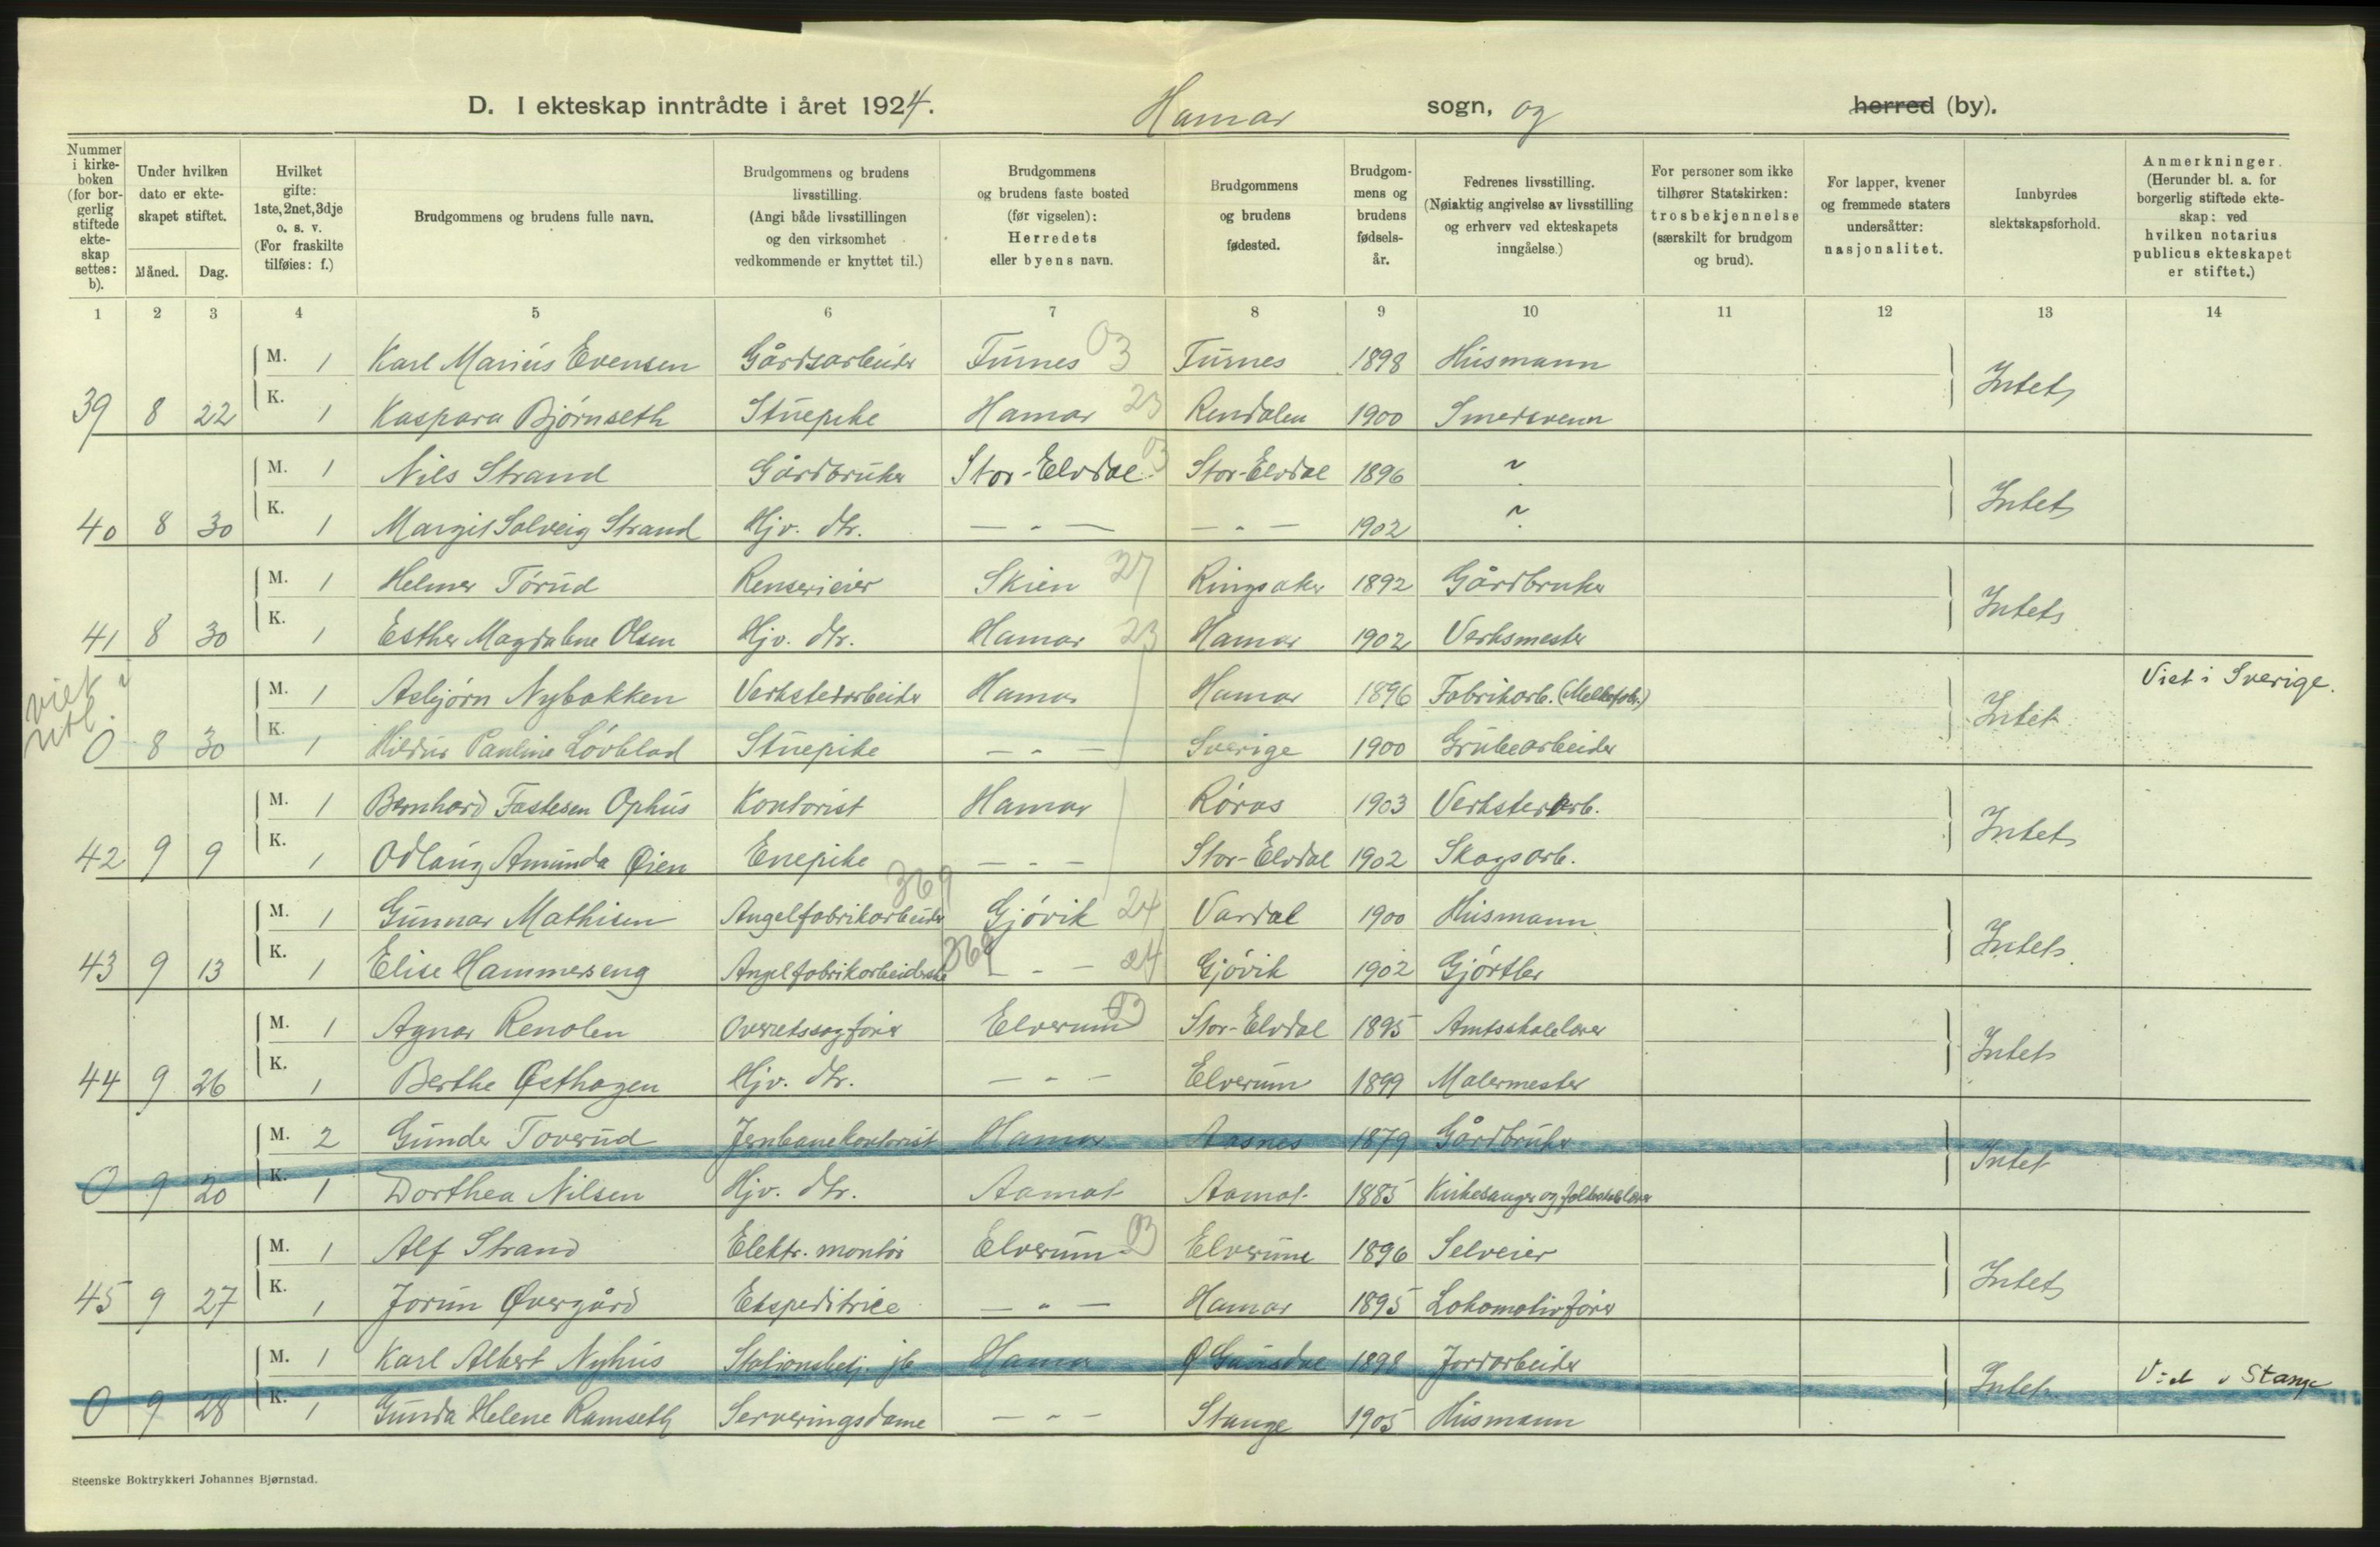 D. I ekteskap inntrådte i året 1924. Hamar sogn, og herred (by).
Nummer i kirke-boken (for bor-gerlig stiftede ekte-skap settes: b).
Under hvilken dato er ekte-skapet stiftet.
Måned. Dag.
Hvilket gifte: 1ste, 2net, 3dje o. s. v. (For fraskilte tilføies: f.)
Brudgommens og brudens fulle navn.
Brudgommens og brudens livsstilling. (Angi både livsstillingen og den virksomhet vedkommende er knyttet til.)
Brudgommens og brudens faste bosted (før vigselen): Herredets eller byens navn.
Brudgommens og brudens fødested.
Brudgom-mens og brudens fødsels-år.
Fedrenes livsstilling. (Nøiaktig angivelse av livsstilling og erhverv ved ekteskapets inngåelse.)
For personer som ikke tilhører Statskirken: trosbekjennelse (særskilt for brudgom og brud).
For lapper, kvener og fremmede staters undersåtter: nasjonalitet.
Innbyrdes slektskapsforhold.
Anmerkninger. (Herunder bl. a. for borgerlig stiftede ekte-skap: ved hvilken notarius publicus ekteskapet er stiftet.)
1 2 3 4 5 6 7 8 9 10 11 12 13 14
M. 1 Karl Marius Evensen Gårdsarbeider Furnes 03 Furnes 1898 Husmann
39 8 22 K. 1 Kaspara Bjørnseth Stuepike Hamar 23 Rendalen 1900 Smedsvenn Intet
M. 1 Nils Strand Gårdbruker Stor-Elvdal 03 Stor-Elvdal 1896 ~
40 8 30 K. 1 Margit Solveig Strand Hjv. dtr. — " — — " — 1902 ~ Intet
M. 1 Helmer Tørud Renserieier Skien 27 Ringsaker 1892 Gårdbruker
41 8 30 K. 1 Esther Magdalene Olsen Hjv. dtr. Hamar 23 Hamar 1902 Verksmester Intet
viet i utl.
M. 1 Asbjørn Nybakken Verkstedarbeider Hamar Hamar 1896 Fabrikarb. (Melkefabr.) Viet i Sverige.
0 8 30 K. 1 Hildur Pauline Lövblad Stuepike — " — Sverige 1900 Grubearbeider Intet
M. 1 Bernhard Fastesen Ophus Kontorist Hamar Røros 1903 Verkstedarb.
42 9 9 K. 1 Odlaug Amunda Øien Enepike — " — Stor-Elvdal 1902 Skogsarb. Intet
M. 1 Gunnar Mathisen Angelfabrikarbeider 369 Gjøvik 24 Vardal 1900 Husmann
43 9 13 K. 1 Elise Hammerseng Angelfabrikarbeiderske 369 — " — 24 Gjøvik 1902 Gjørtler Intet
M. 1 Agnar Renolen Overretssagfører Elverum 03 Stor-Elvdal 1895 Amtsskolelærer
44 9 26 K. 1 Berthe Østhagen Hjv. dtr. — " — Elverum 1899 Malermester Intet
M. 2 Gunder Toverud Jernbanekontorist Hamar Aasnes 1879 Gårdbruker
0 9 20 K. 1 Dorthea Nilsen Hjv. dtr. Aamot Aamot 1885 Kirkesanger og folkeskolelærer Intet
M. 1 Alf Strand Elektr. montør Elverum 03 Elverum 1896 Selveier
45 9 27 K. 1 Jorun Øvergård Ekspeditrice — " — Hamar 1895 Lokomotivfører Intet
M. 1 Karl Albert Nyhus Stationsbetj. jb Hamar Ø Gausdal 1898 Jordarbeider
0 9 28 K. 1 Gunda Helene Ramseth Serveringsdame — " — Stange 1905 Husmann Intet Viet i Stange
Steenske Boktrykkeri Johannes Bjørnstad.